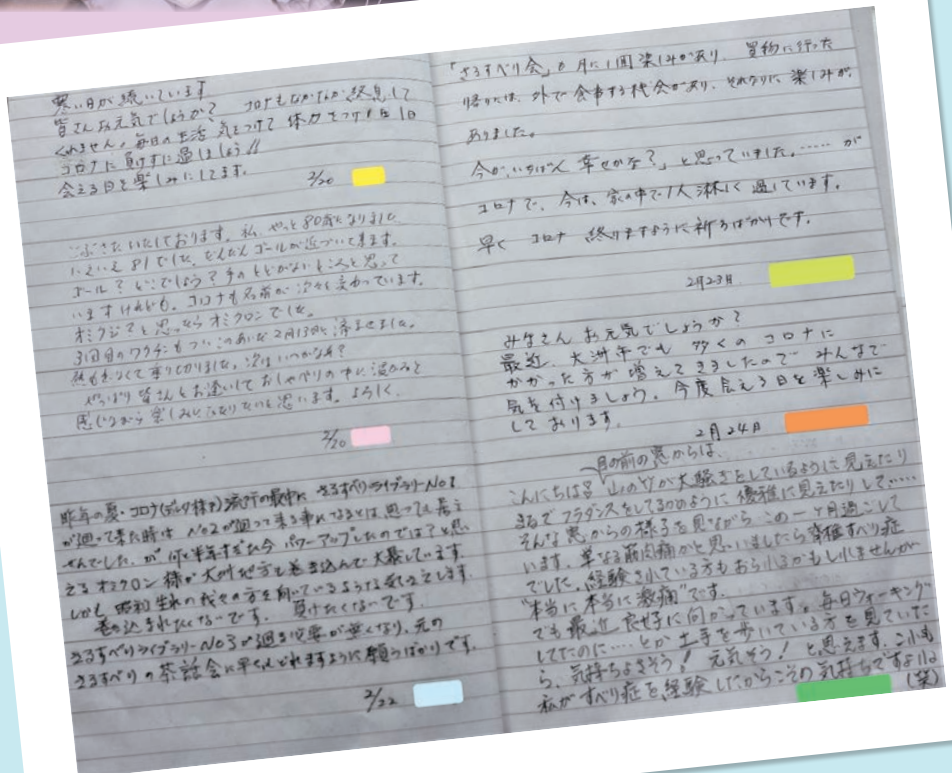 寒い日が続いています
皆さんお元気でしょうか? コロナもなかなか終息して
くれません。毎日の生活 気をつけて 体力をつけ1日1日
コロナに負けずに過しましょう!!
会える日を楽しみにしてます。
2/20
ごぶさたいたしております。私、やっと80歳になりました
いえいえ81でした。だんだんゴールが近づいて来ます。
ゴール?どこでしょう?手のとどかないところと思って
いますけれども。コロナも名前が次々と変わっています。
オミクジと思ったらオミクロンでした。
3回目のワクチンもついこのあいだ2月13日に済ませました。
熱もなくて乗り切りました。次はいつかなぁ?
やっぱり皆さんとお逢いしておしゃべりの中に
感じながら楽しみになりたいと思います。よろしく
2/20
昨年の夏・コロナ(デルタ株?)流行の最中に さるすべりライブラリーNo1
が廻って来た時は No2が廻って来る事になるとは思っても居ま
せんでした。が何と半年すぎた今 パワーアップしたのでは?と思
えるオミクロン様が大洲地方を巻き込んで大暴れしています。
しかも昭和生れの我々の方を向いているような気さえします。
巻き込まれたくないです。 負けたくないです。
さるすべりライブラリーNo3が廻る必要が無くなり、元の
さるすべりの茶話会に早くもどれますように願うばかりです。
2/22
「さるすべり会」が月に1回楽しみがあり、買物に行った
帰りには、外で食事する機会があり、それなりに楽しみが、
ありました。
今が、いちばん幸せかな?」と思っていました。……が
コロナで、今は、家の中で1人淋しく過しています。
早く コロナ 終りますように祈るばかりです。
2月23日
みなさん お元気でしょうか?
最近、大洲市でも 多くのコロナに
かかった方が増えてきましたので みんなで
気を付けましょう。今度会える日を楽しみに
しております。
2月24日
目の前の窓からは、
こんにちは 山の竹が大騒ぎをしているように見えたり
まるでフラダンスをしてるかのように優雅に見えたりして……
そんな窓からの様子を見ながらこの一ヶ月過ごして
います。単なる筋肉痛かと思いましたら脊椎すべり症
でした。経験されている方もおられるかもしれませんが
"本当に本当に激痛"です。
でも最近良好に向かっています。毎日ウォーキング
してたのに…とか土手を歩いている方を見ていた
ら、気持ちよさそう! 元気そう!と思えます。これも
私がすべり症を経験したからこその気持ちですよね
(笑)